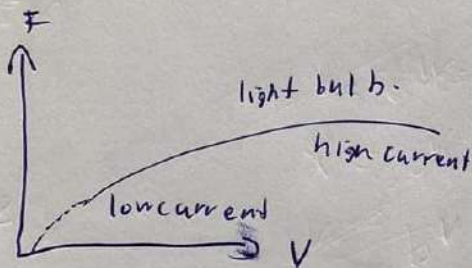 I
light bulb.
high current
low current
V